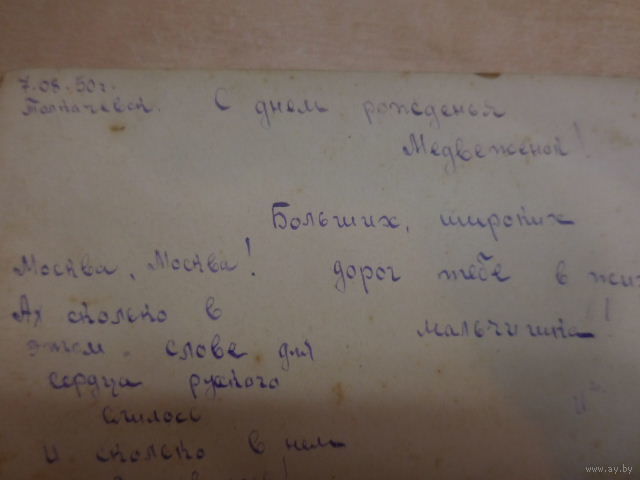 7.08.50г.
С днем рожеденья
Медвеженок!
Больших, широких
дорог тебе в
мальчишка!
Москва, Москва!
Ах сколько в
этом слове для
сердца руского
слилось
и сколько в нем
www.ay.by